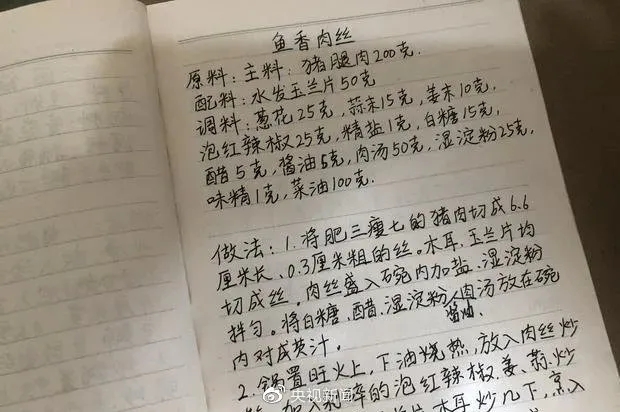 鱼香肉丝
原料：主料：猪腿肉200克.
配料：水发玉兰片50克
调料：葱花25克，蒜末15克，姜末10克，
泡红辣椒25克，精盐1克，白糖15克，
醋5克，酱油5克，肉汤50克，湿淀粉25克，
味精1克，菜油100克.
做法：1.将肥三瘦七的猪肉切成6.6
厘米长、0.3厘米粗的丝。木耳、玉兰片均
切成丝。肉丝盛入碗内加盐、湿淀粉
拌匀。将白糖、醋、湿淀粉、肉汤放在碗
酱油、
内对成芡汁。
2.锅置旺火上，下油烧热，放入肉丝炒
加入 碎的泡红辣椒、姜、蒜炒
片、木耳炒几下，烹入
@央视新闻